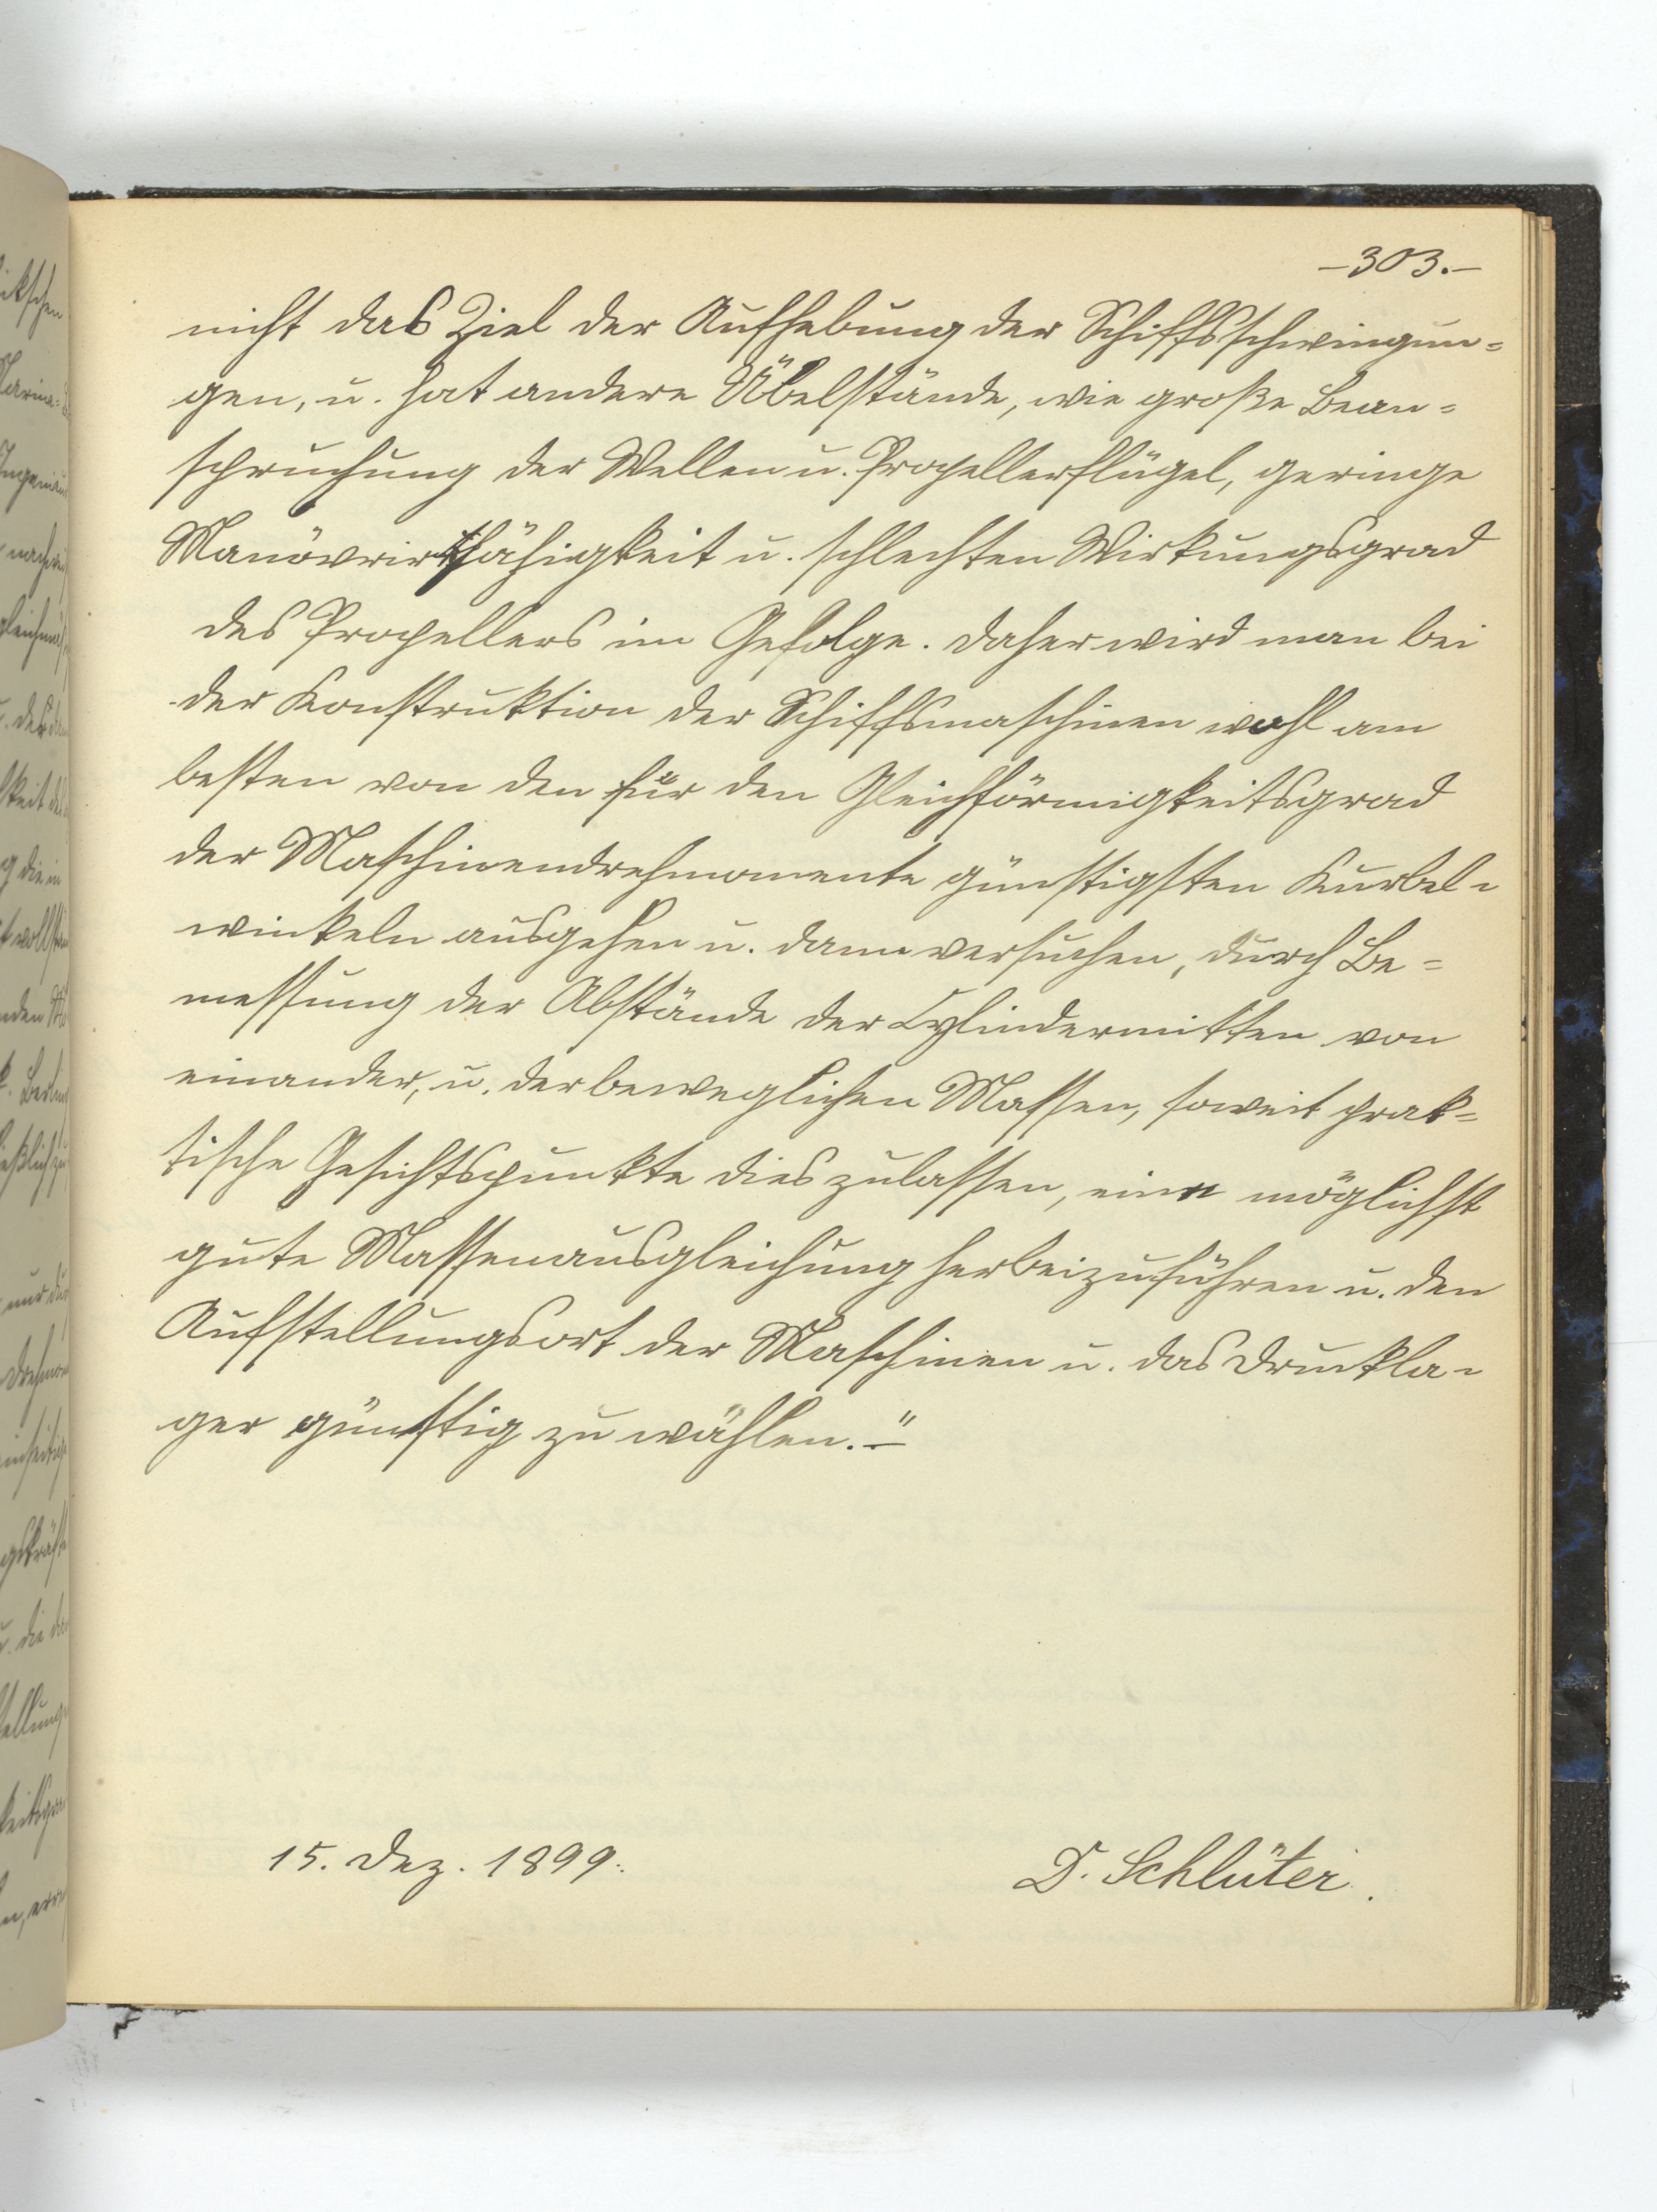 -303.-
nicht das Ziel der Aufhebung der Schiffsschwingun=
gen, u. hat andere Übelstände, wie große Bean=
spruchung der Wellen u. Propellerflügel, geringe
Manövrirfähigkeit u. schlechten Wirkungsgrad
des Propellers im Gefolge. Daher wird man bei
der Konstruktion der Schiffsmaschinen wohl am
besten von den für den Gleichförmigkeitsgrad
der Maschinendrehmomente günstigsten Kurbel=
winkeln ausgehen u. dann versuchen, durch Be=
messung der Abstände der Cylindermitten von
einander, u. der beweglichen Massen, soweit prak=
tische Gesichtspunkte dies zulassen, eine möglichst
gute Massenausgleichung herbeizuführen u. den
Aufstellungsort der Maschinen u. das Druckla=
ger günstig zu wählen.-"
15. Dez. 1899.
D. Schlüter.